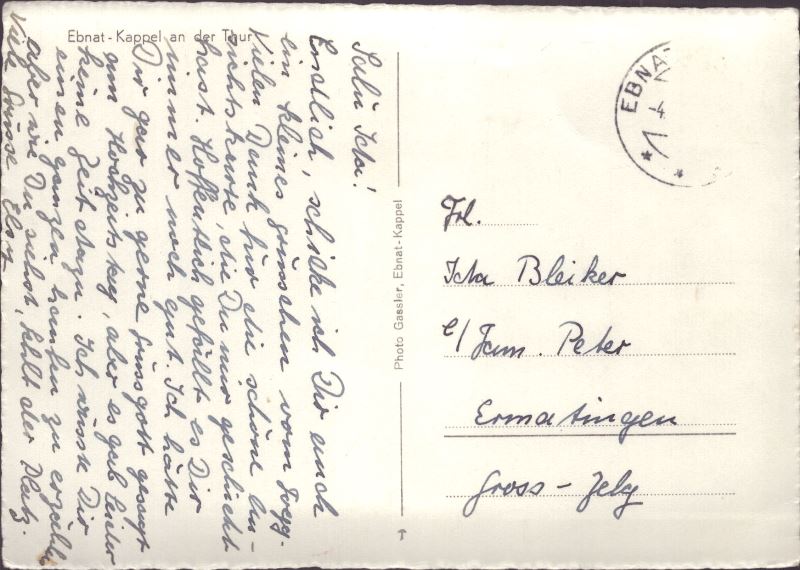 Ebnat-Kappel an der Thur
Salü Ida!
Endlich, schicke ich Dir auch
ein kleines Grüsschen vom Togg.
Vielen Dank für die schöne An-
sichtskarte, die Du mir geschickt
hast. Hoffentlich gefällt es Dir
immer noch gut. Ich hätte
Dir gar zu gerne Grüsgott gesagt
am Hochzeitstag, aber es gab leider
keine Zeit dazu. Ich wüsste Dir
einen ganzen haufen zu erzählen
aber wie Du siehst, fehlt der Platz.
Viele Grüsse Elsy
Photo Gassler, Ebnat-Kappel
EBNAT
Frl.
Ida Bleiker
c/ Fam. Peter
Ermatingen
Gross-